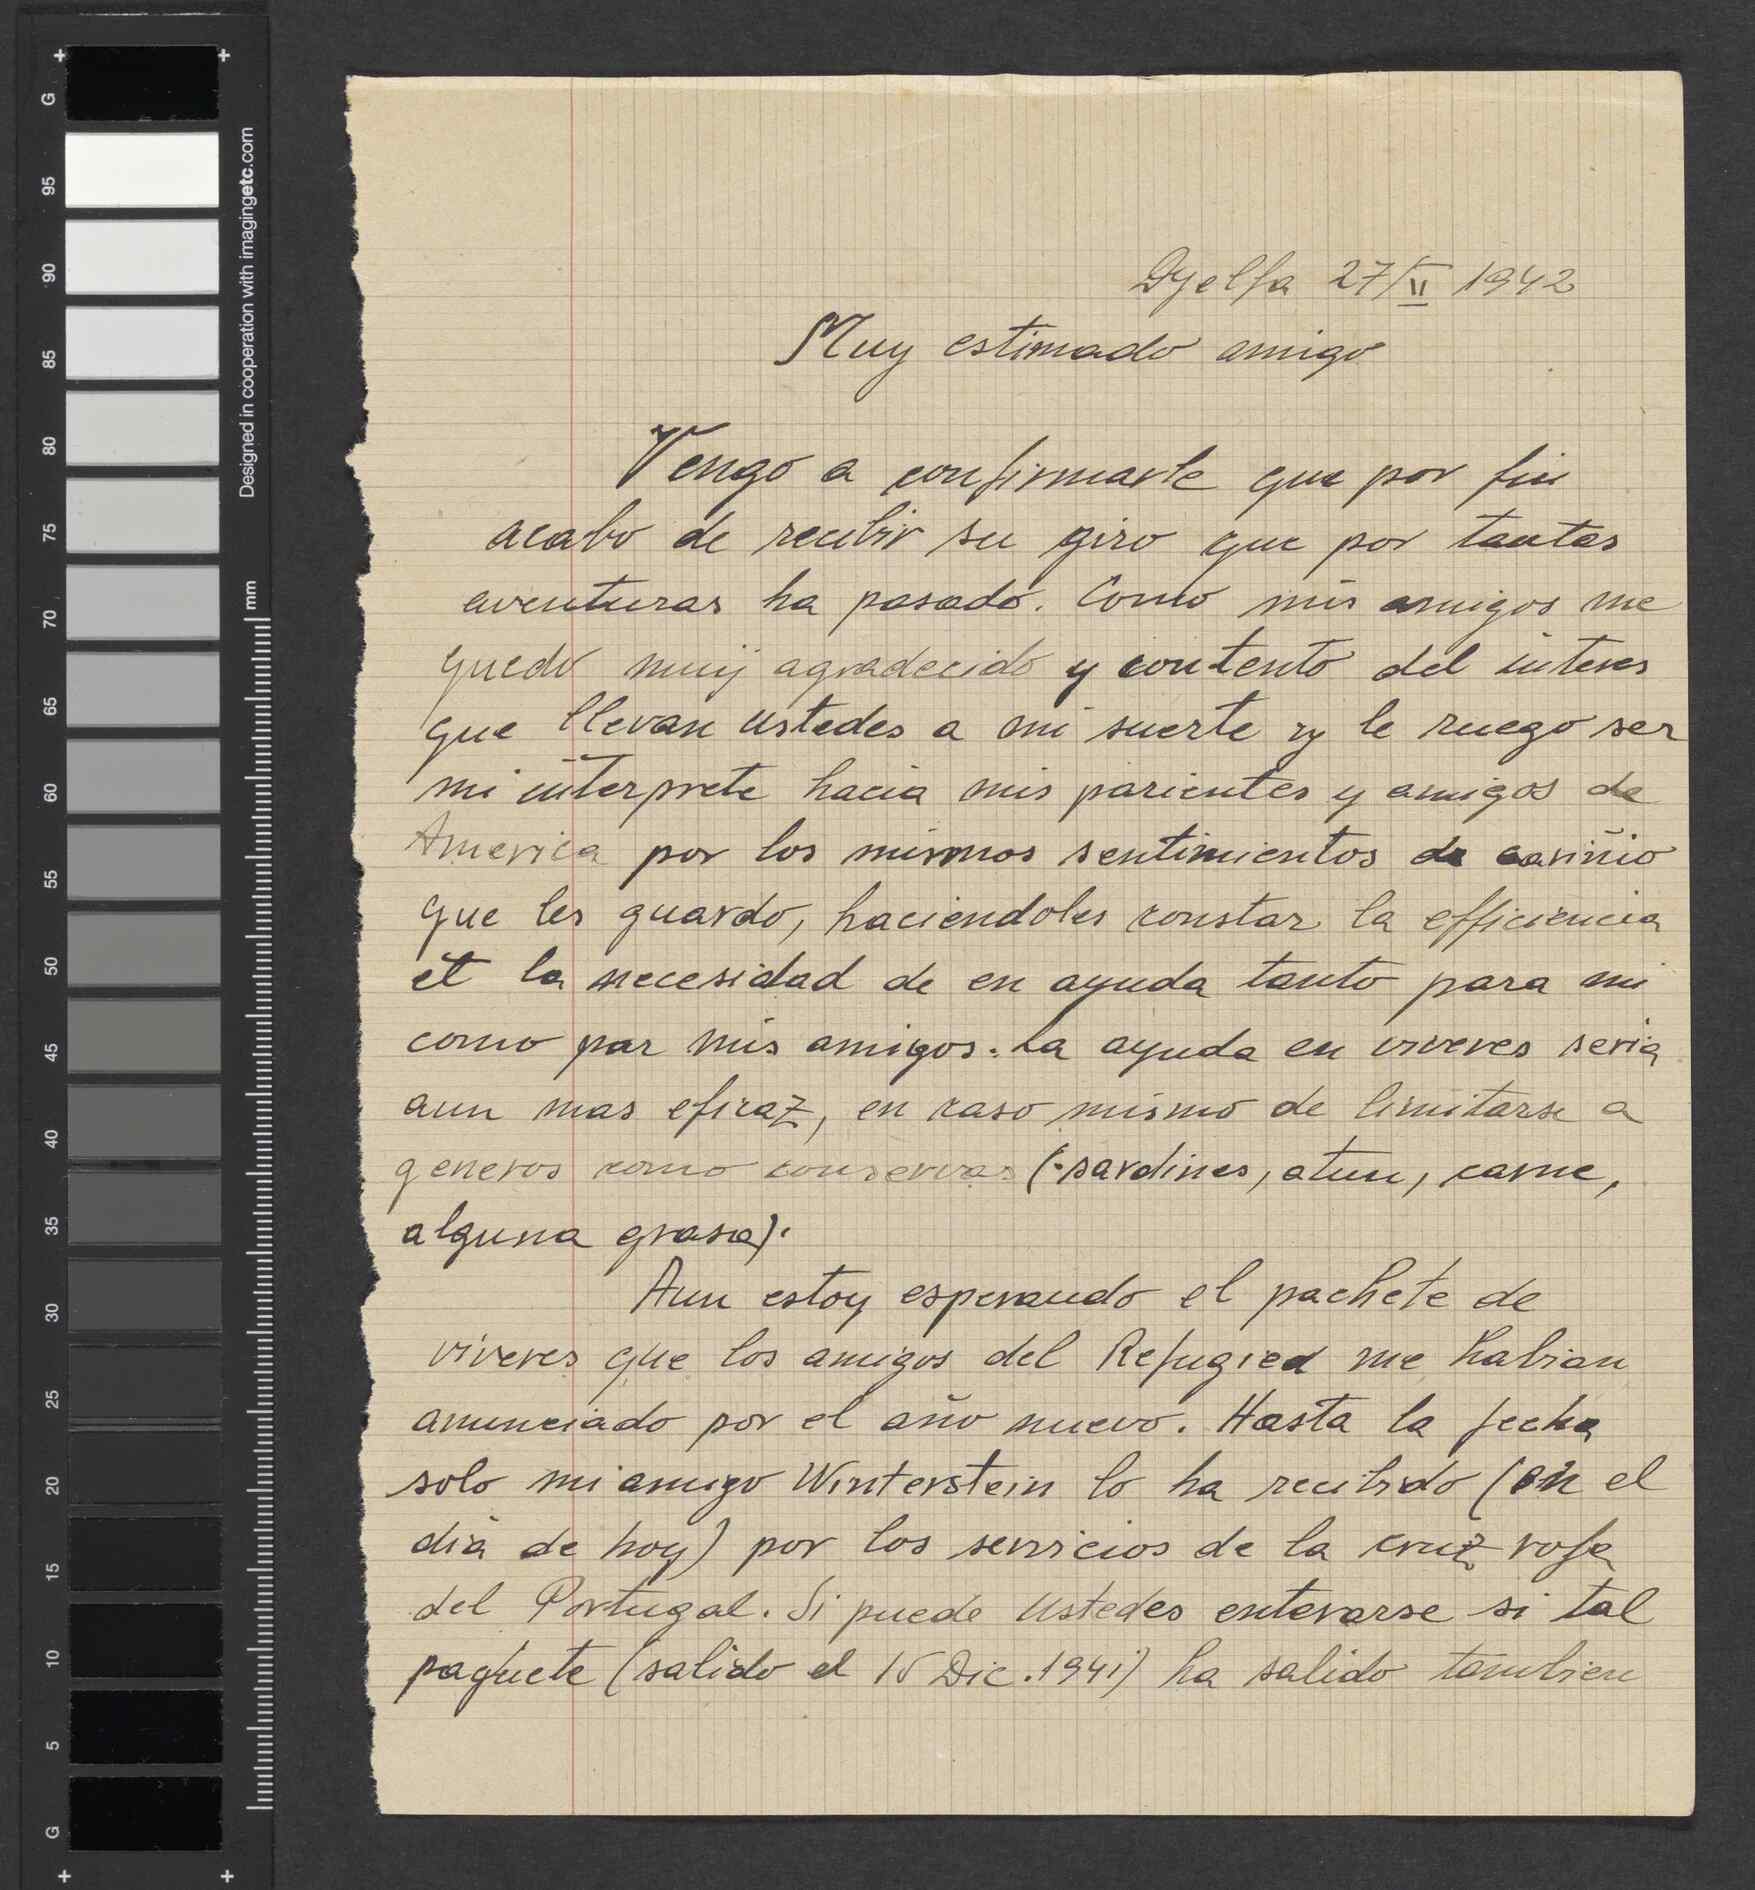 Djelfa 27/II 1942
Muy estimado amigo
Vengo a confirmarle que por fin
acabo de recibir su giro que por tantas
aventuras ha pasado. Como mis amigos me
quedo muy agradecido y contento del interes
que llevan ustedes a mi suerte y le ruego ser
mi interprete hacia mis parientes y amigos de
America por los mismos sentimientos de cariñio
que les guardo, haciendoles constar la efficiencia
et la necesidad de en ayuda tanto para mi
como par mis amigos. La ayuda en viveres seria
aun mas eficaz, en caso mismo de limitarse a
generos como conservas (sardines, atun, carne,
alguna grasa).
Aun estoy esperando el pachete de
viveres que los amigos del Refugied me habian
anunciado por el año nuevo. Hasta la fecha
solo mi amigo Winterstein lo ha recibido (en el
dia de hoy) por los servicios de la cruz roja
del Portugal. Si puede Ustedes enterarse si tal
paquete (salido el 15 Dic. 1941) ha salido tambien
G 95 90 85 80 75 70 65 60 55 50 45 40 35 30 25 20 15 10 5 G
Designed in cooperation with imagingetc.com
mm